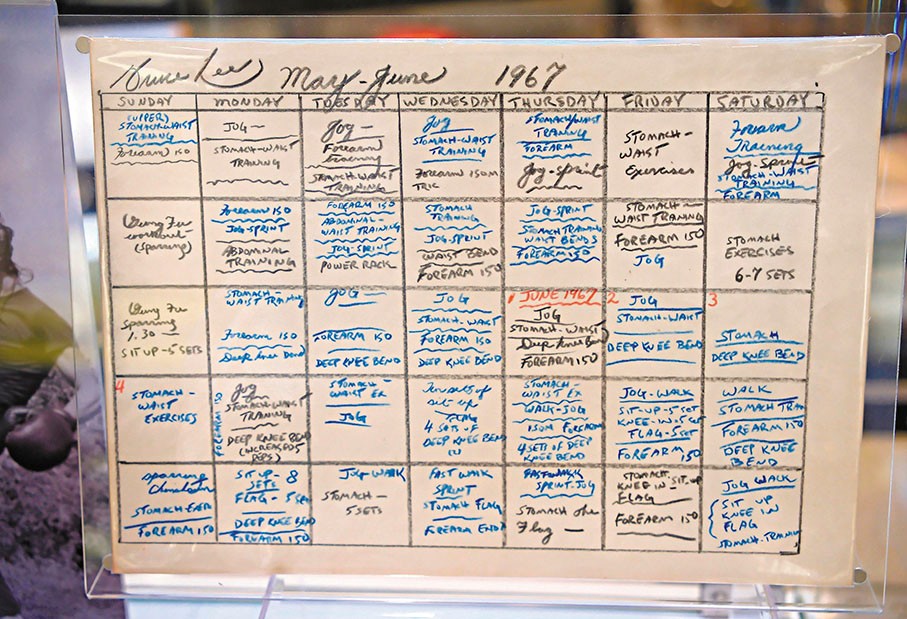 Bruce Lee May-June 1967
SUNDAY MONDAY TUESDAY WEDNESDAY THURSDAY FRIDAY SATURDAY
(UPPER)
STOMACH-WAIST
TRAINING
Forearm ISO
JOG —
STOMACH-WAIST
TRAINING
Jog —
Forearm
training
STOMACH-WAIST
TRAINING
Jog
STOMACH-WAIST
TRAINING
Forearm ISOM
TRIC
STOMACH/WAIST
TRAINING
FOREARM
Jog-sprint
STOMACH-
WAIST
Exercises
Forearm
Training
Jog-Sprint
STOMACH-WAIST
TRAINING
FOREARM
Gung Fu
workout
(sparring)
Forearm ISO
JOG-SPRINT
ABDOMINAL
TRAINING
FOREARM ISO
ABDOMINAL-
WAIST TRAINING
JOG-SPRINT
POWER RACK
STOMACH
TRAINING
JOG-SPRINT
WAIST BEND
FOREARM ISO
JOG-SPRINT
STOMACH TRAINING
WAIST BENDS
FOREARM ISO
STOMACH-
WAIST TRAINING
FOREARM ISO
JOG
STOMACH
EXERCISES
6-7 SETS
Gung Fu
Sparring
1.30 —
SIT UP-5 SETS
STOMACH-
WAIST TRAINING
Forearm ISO
Deep Knee Bend
JOG —
FOREARM ISO
DEEP KNEE BEND
JOG
STOMACH-WAIST
FOREARM ISO
DEEP KNEE BEND
1 JUNE 1967
JOG
STOMACH-WAIST
Deep Knee Bend
FOREARM ISO
2 JOG
STOMACH-WAIST
DEEP KNEE BEND
3
STOMACH
DEEP KNEE BEND
4
STOMACH-
WAIST
EXERCISES
FOREARM ISO
Jog
STOMACH-WAIST
TRAINING
DEEP KNEE BEND
(INCREASED 5
REPS)
STOMACH-
WAIST EX
JOG
sit-up
FLAG
4 SETS OF
DEEP KNEE BEND
STOMACH-
WAIST EX
WALK-JOG
ISOM FOREARM
4 SETS OF DEEP
KNEE BEND
JOG-WALK
SIT-UP-5 SET
KNEE-IN-5 SET
FLAG-5 SET
FOREARM
ISO
WALK
STOMACH TRAI
FOREARM ISO
DEEP KNEE
BEND
Sparring
STOMACH-
FOREARM ISO
SIT UP-8
SETS
FLAG-5 SET
DEEP KNEE BEND
FOREARM ISO
JOG-WALK
STOMACH-
5 SETS
FAST WALK
SPRINT
STOMACH FLAG
FOREARM
FAST WALK
SPRINT-JOG
STOMACH
Flag —
STOMACH.
KNEE IN-SIT-UP
FLAG
FOREARM ISO
JOG WALK
SIT UP
KNEE IN
FLAG
STOMACH-TRAINING